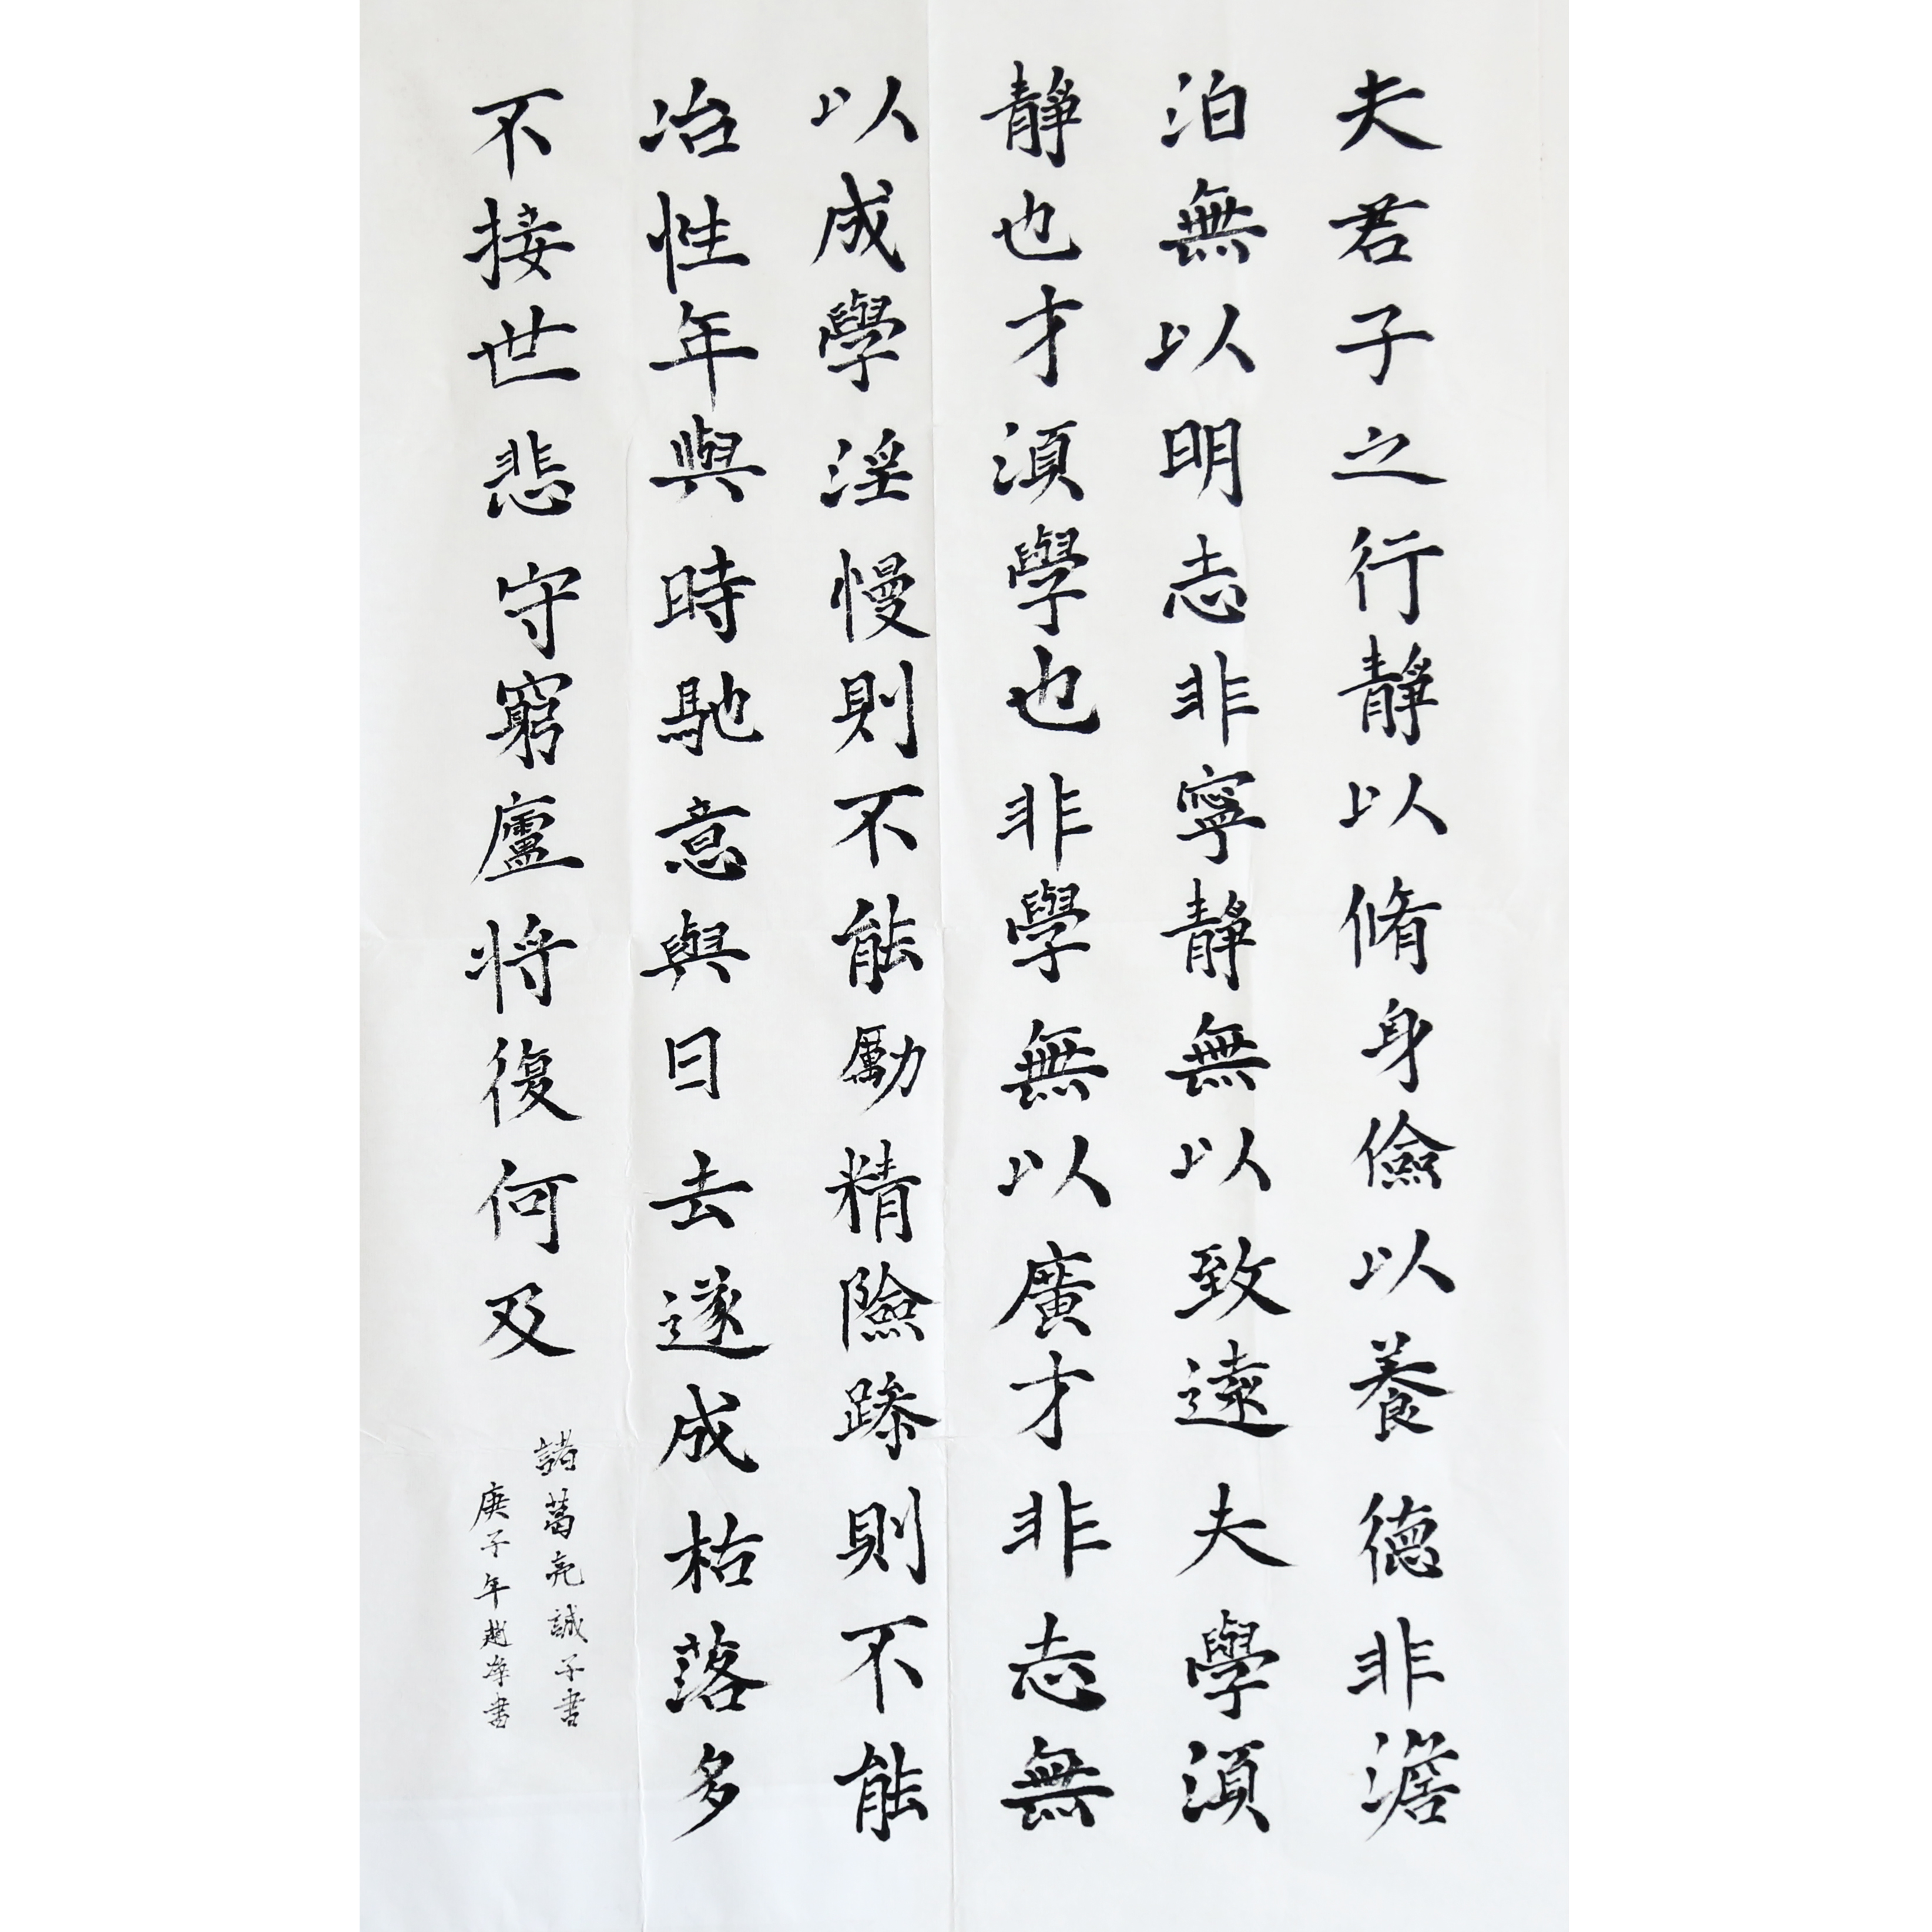 夫君子之行靜以脩身儉以養德非澹
泊無以明志非寧靜無以致遠夫學須
靜也才須學也非學無以廣才非志無
以成學淫慢則不能勵精險躁則不能
冶性年與時馳意與日去遂成枯落多
不接世悲守窮廬將復何及
諸葛亮誡子書
庚子年趙書